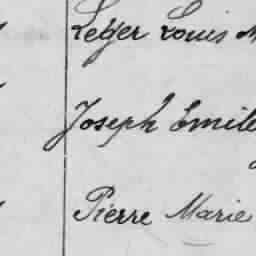 Leger Louis
Joseph Emile
Pierre Marie